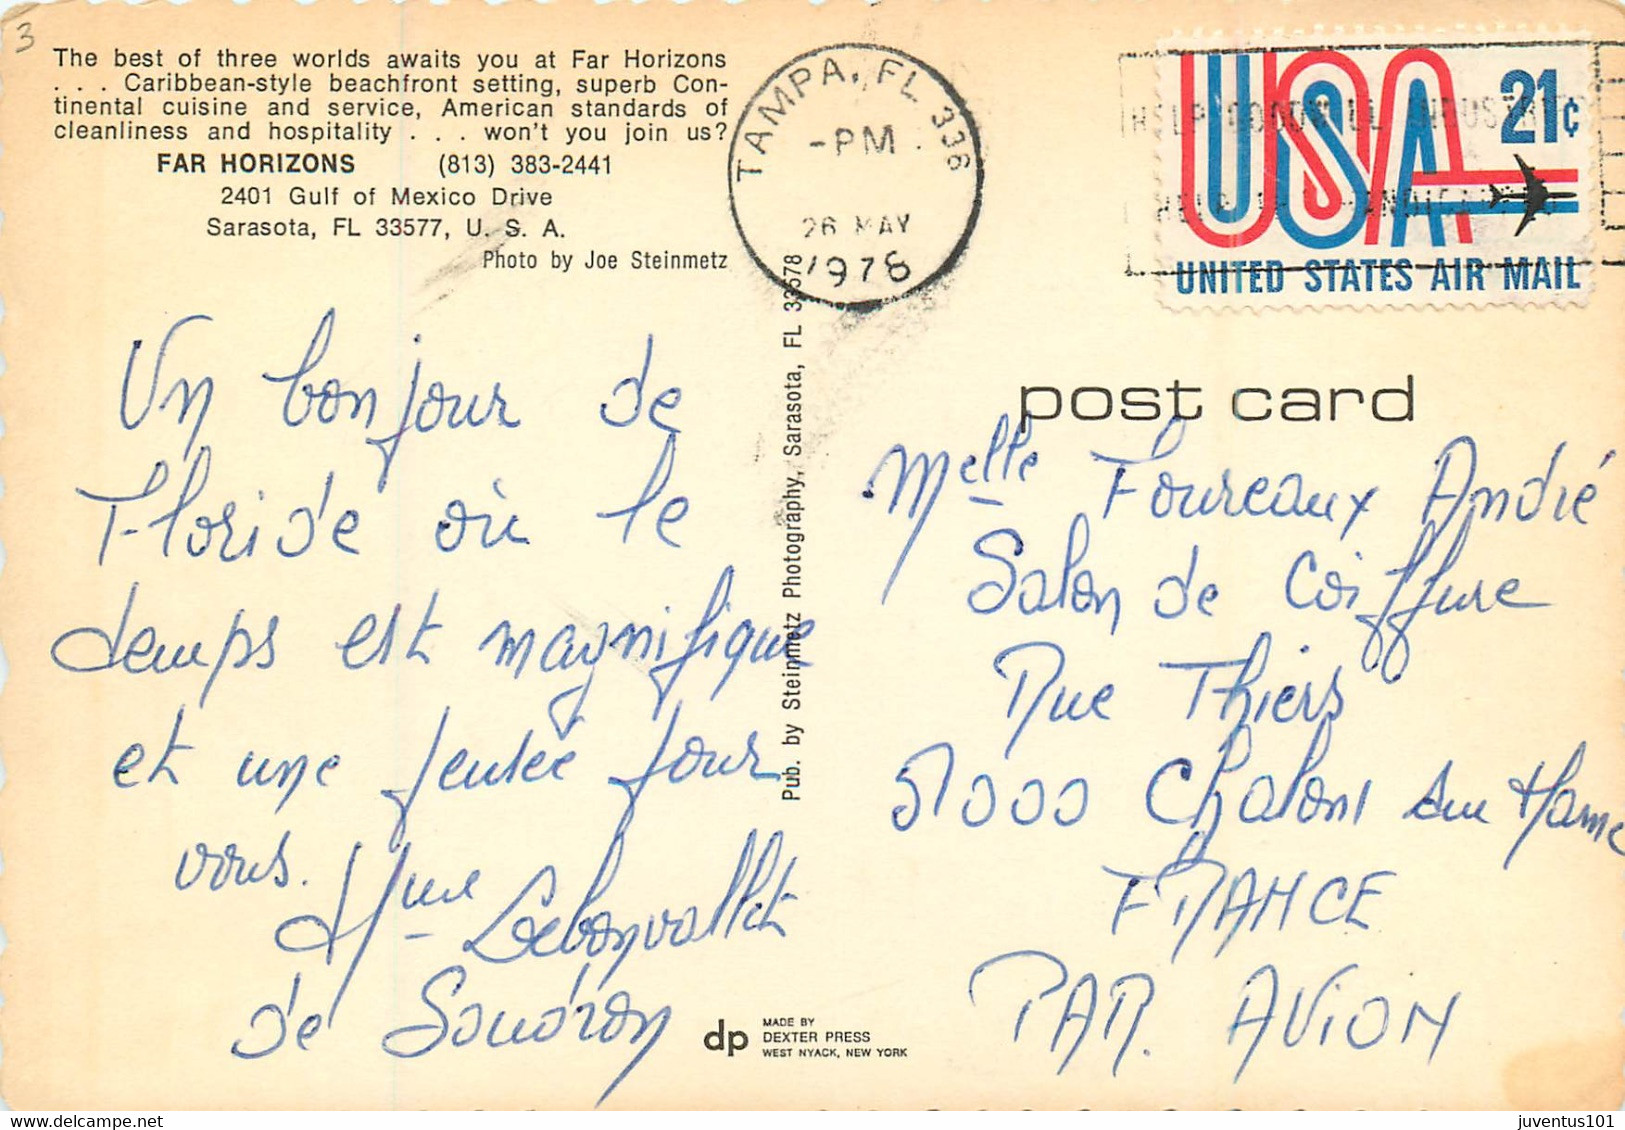 3
The best of three worlds awaits you at Far Horizons
. . . Caribbean-style beachfront setting, superb Con-
tinental cuisine and service, American standards of
cleanliness and hospitality . . . won't you join us?
FAR HORIZONS (813) 383-2441
2401 Gulf of Mexico Drive
Sarasota, FL 33577, U. S. A.
Photo by Joe Steinmetz
TAMPA, FL 336
-PM
26 MAY
1978
HELP GOODWILL INDUSTRIES
HELP HANDICAPPED
USA 21c
UNITED STATES AIR MAIL
Un bonjour de
Floride où le
temps est magnifique
et une pensée pour
vous.
Mme Lebonvallet
de Soudron
Pub. by Steinmetz Photography, Sarasota, FL 33578
post card
Melle Foureaux André
Salon de Coiffure
Rue Thiers
51000 Chalons sur Marne
FRANCE
PAR AVION
dp MADE BY
DEXTER PRESS
WEST NYACK, NEW YORK
juventus101